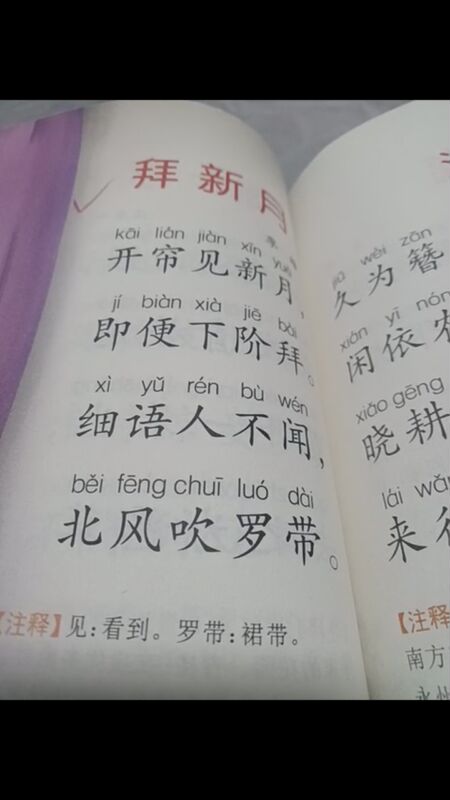 拜新月
李
kāi lián jiàn xīn yuè
开帘见新月，
jí biàn xià jiē bài
即便下阶拜。
xì yǔ rén bù wén
细语人不闻，
běi fēng chuī luó dài
北风吹罗带。
【注释】见：看到。罗带：裙带。
jiǔ wéi zān
久为簪
xián yī nóng
闲依农
xiǎo gēng
晓耕
lái wǎng
来往
【注释
南方
永州